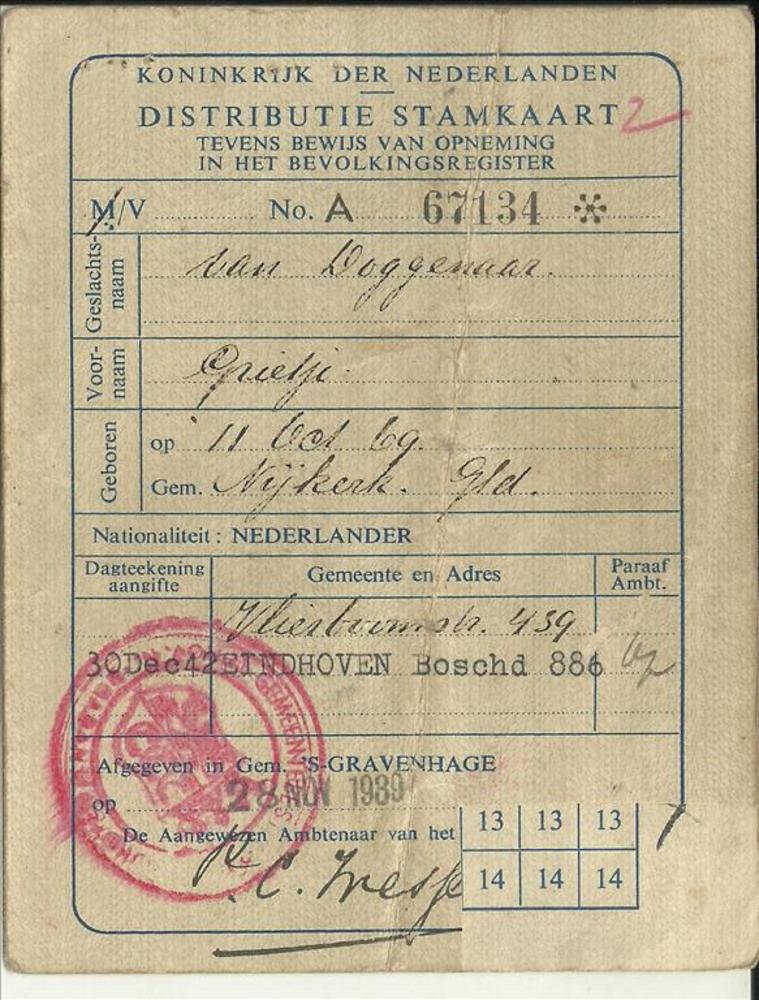 KONINKRIJK DER NEDERLANDEN
DISTRIBUTIE STAMKAART 2
TEVENS BEWIJS VAN OPNEMING
IN HET BEVOLKINGSREGISTER
M/V No. A 67134
Geslachts-
naam
van Doggenaar.
Voor-
naam
Grietje
Geboren
op 11 Oct 69.
Gem. Nijkerk. Gld.
Nationaliteit : NEDERLANDER
Dagteekening
aangifte
Gemeente en Adres
Paraaf
Ambt.
Vlierboomstr. 439
30Dec42EINDHOVEN Boschd 886
Afgegeven in Gem. 'S-GRAVENHAGE
op 28 NOV 1939
De Aangewezen Ambtenaar van het
13 13 13
14 14 14